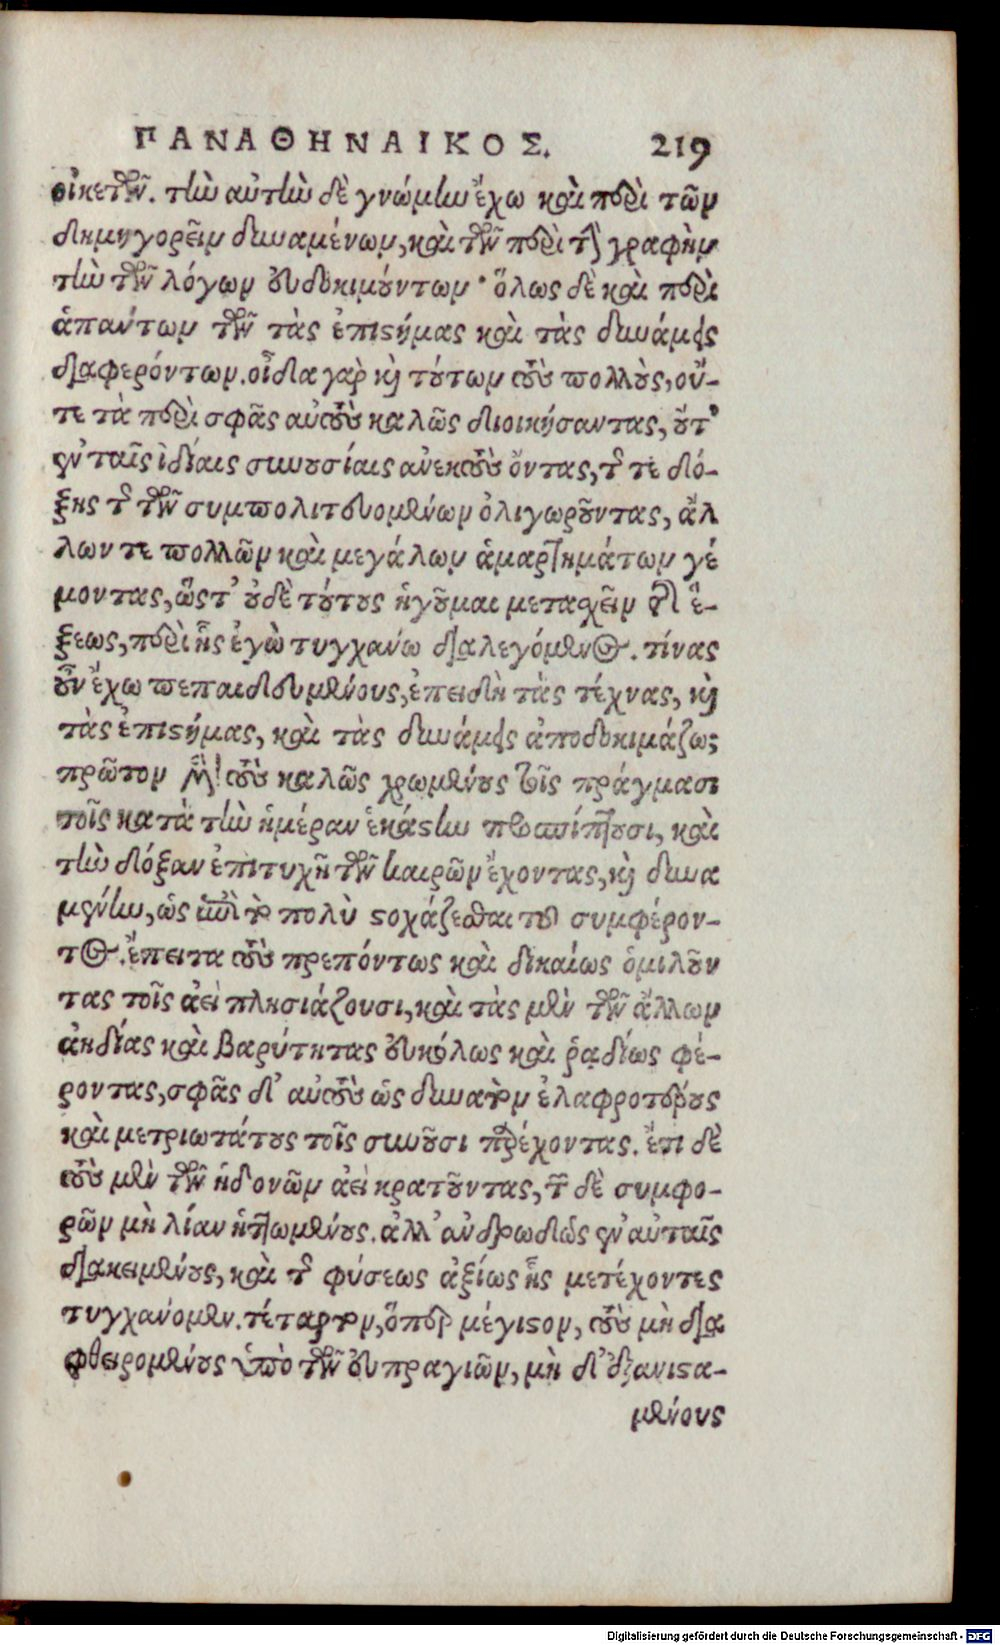 ΠΑΝΑΘΗΝΑΙΚΟΣ. 219
οἰκετῶν. τὴν αὐτὴν δὲ γνώμην ἔχω καὶ περὶ τῶν
δημηγορεῖν δυναμένων, καὶ τῶν περὶ τὴν γραφὴν
τὴν τῶν λόγων εὐδοκιμούντων· ὅλως δὲ καὶ περὶ
ἁπάντων τῶν τὰς ἐπιστήμας καὶ τὰς δυνάμεις
διαφερόντων. οἶδα γὰρ καὶ τούτων τοὺς πολλοὺς, οὔ-
τε τὰ περὶ σφᾶς αὐτοὺς καλῶς διοικήσαντας, οὔτ'
ἐν ταῖς ἰδίαις συνουσίαις ἀνεκτοὺς ὄντας, τῆς τε δό-
ξης τῆς τῶν συμπολιτευομένων ὀλιγωροῦντας, ἄλ
λων τε πολλῶν καὶ μεγάλων ἁμαρτημάτων γέ
μοντας, ὥστ' οὐδὲ τούτους ἡγοῦμαι μετασχεῖν τῆς ἕ-
ξεως, περὶ ἧς ἐγὼ τυγχάνω διαλεγόμενος. τίνας
οὖν ἔχω πεπαιδευμένους, ἐπειδὴ τὰς τέχνας, καὶ
τὰς ἐπιστήμας, καὶ τὰς δυνάμεις ἀποδοκιμάζω;
πρῶτον μὲν τοὺς καλῶς χρωμένους τοῖς πράγμασι
τοῖς κατὰ τὴν ἡμέραν ἑκάστην προσπίπτουσι, καὶ
τὴν δόξαν ἐπιτυχῆ τῶν καιρῶν ἔχοντας, καὶ δυνα
μένην, ὡς ἐπὶ τὸ πολὺ στοχάζεσθαι τοῦ συμφέρον-
τος. ἔπειτα τοὺς πρεπόντως καὶ δικαίως ὁμιλοῦν
τας τοῖς ἀεὶ πλησιάζουσι, καὶ τὰς μὲν τῶν ἄλλων
ἀηδίας καὶ βαρύτητας εὐκόλως καὶ ῥᾳδίως φέ-
ροντας, σφᾶς δ' αὐτοὺς ὡς δυνατὸν ἐλαφροτέρους
καὶ μετριωτάτους τοῖς συνοῦσι παρέχοντας. ἔτι δὲ
τοὺς μὲν τῶν ἡδονῶν ἀεὶ κρατοῦντας, τῶν δὲ συμφο-
ρῶν μὴ λίαν ἡττωμένους. ἀλλ' ἀνδρωδῶς ἐν αὐταῖς
διακειμένους, καὶ τῆς φύσεως ἀξίως ἧς μετέχοντες
τυγχάνομεν. τέταρτον, ὅπερ μέγιστον, τοὺς μὴ δια
φθειρομένους ὑπὸ τῶν εὐπραγιῶν, μὴ δ' ἐξανιστα-
μένους
Digitalisierung gefördert durch die Deutsche Forschungsgemeinschaft - DFG